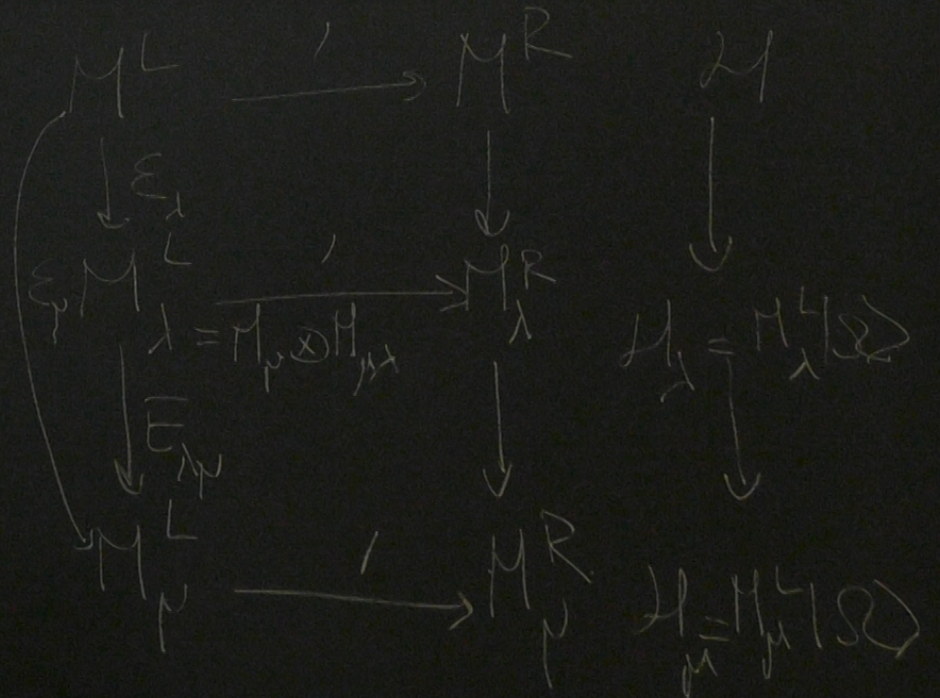 M^L —′→ M^R   ℋ
↓ ε_λ   ↓   ↓
ε_μ   M^L_λ = M_μ ⊗ M_{μλ} —′→ M^R_λ   ℋ_λ = M^L_λ|Ω⟩
↓ E_{λμ}   ↓   ↓
M^L_μ —′→ M^R_μ   ℋ_μ = M^L_μ|Ω⟩